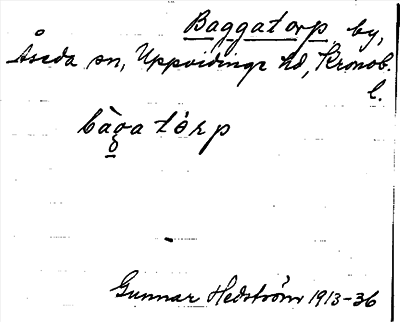 Baggatorp by,
Åseda sn, Uppvidinge hd, Kronob.
l.
bàgatórp
Gunnar Hedström 1913-36